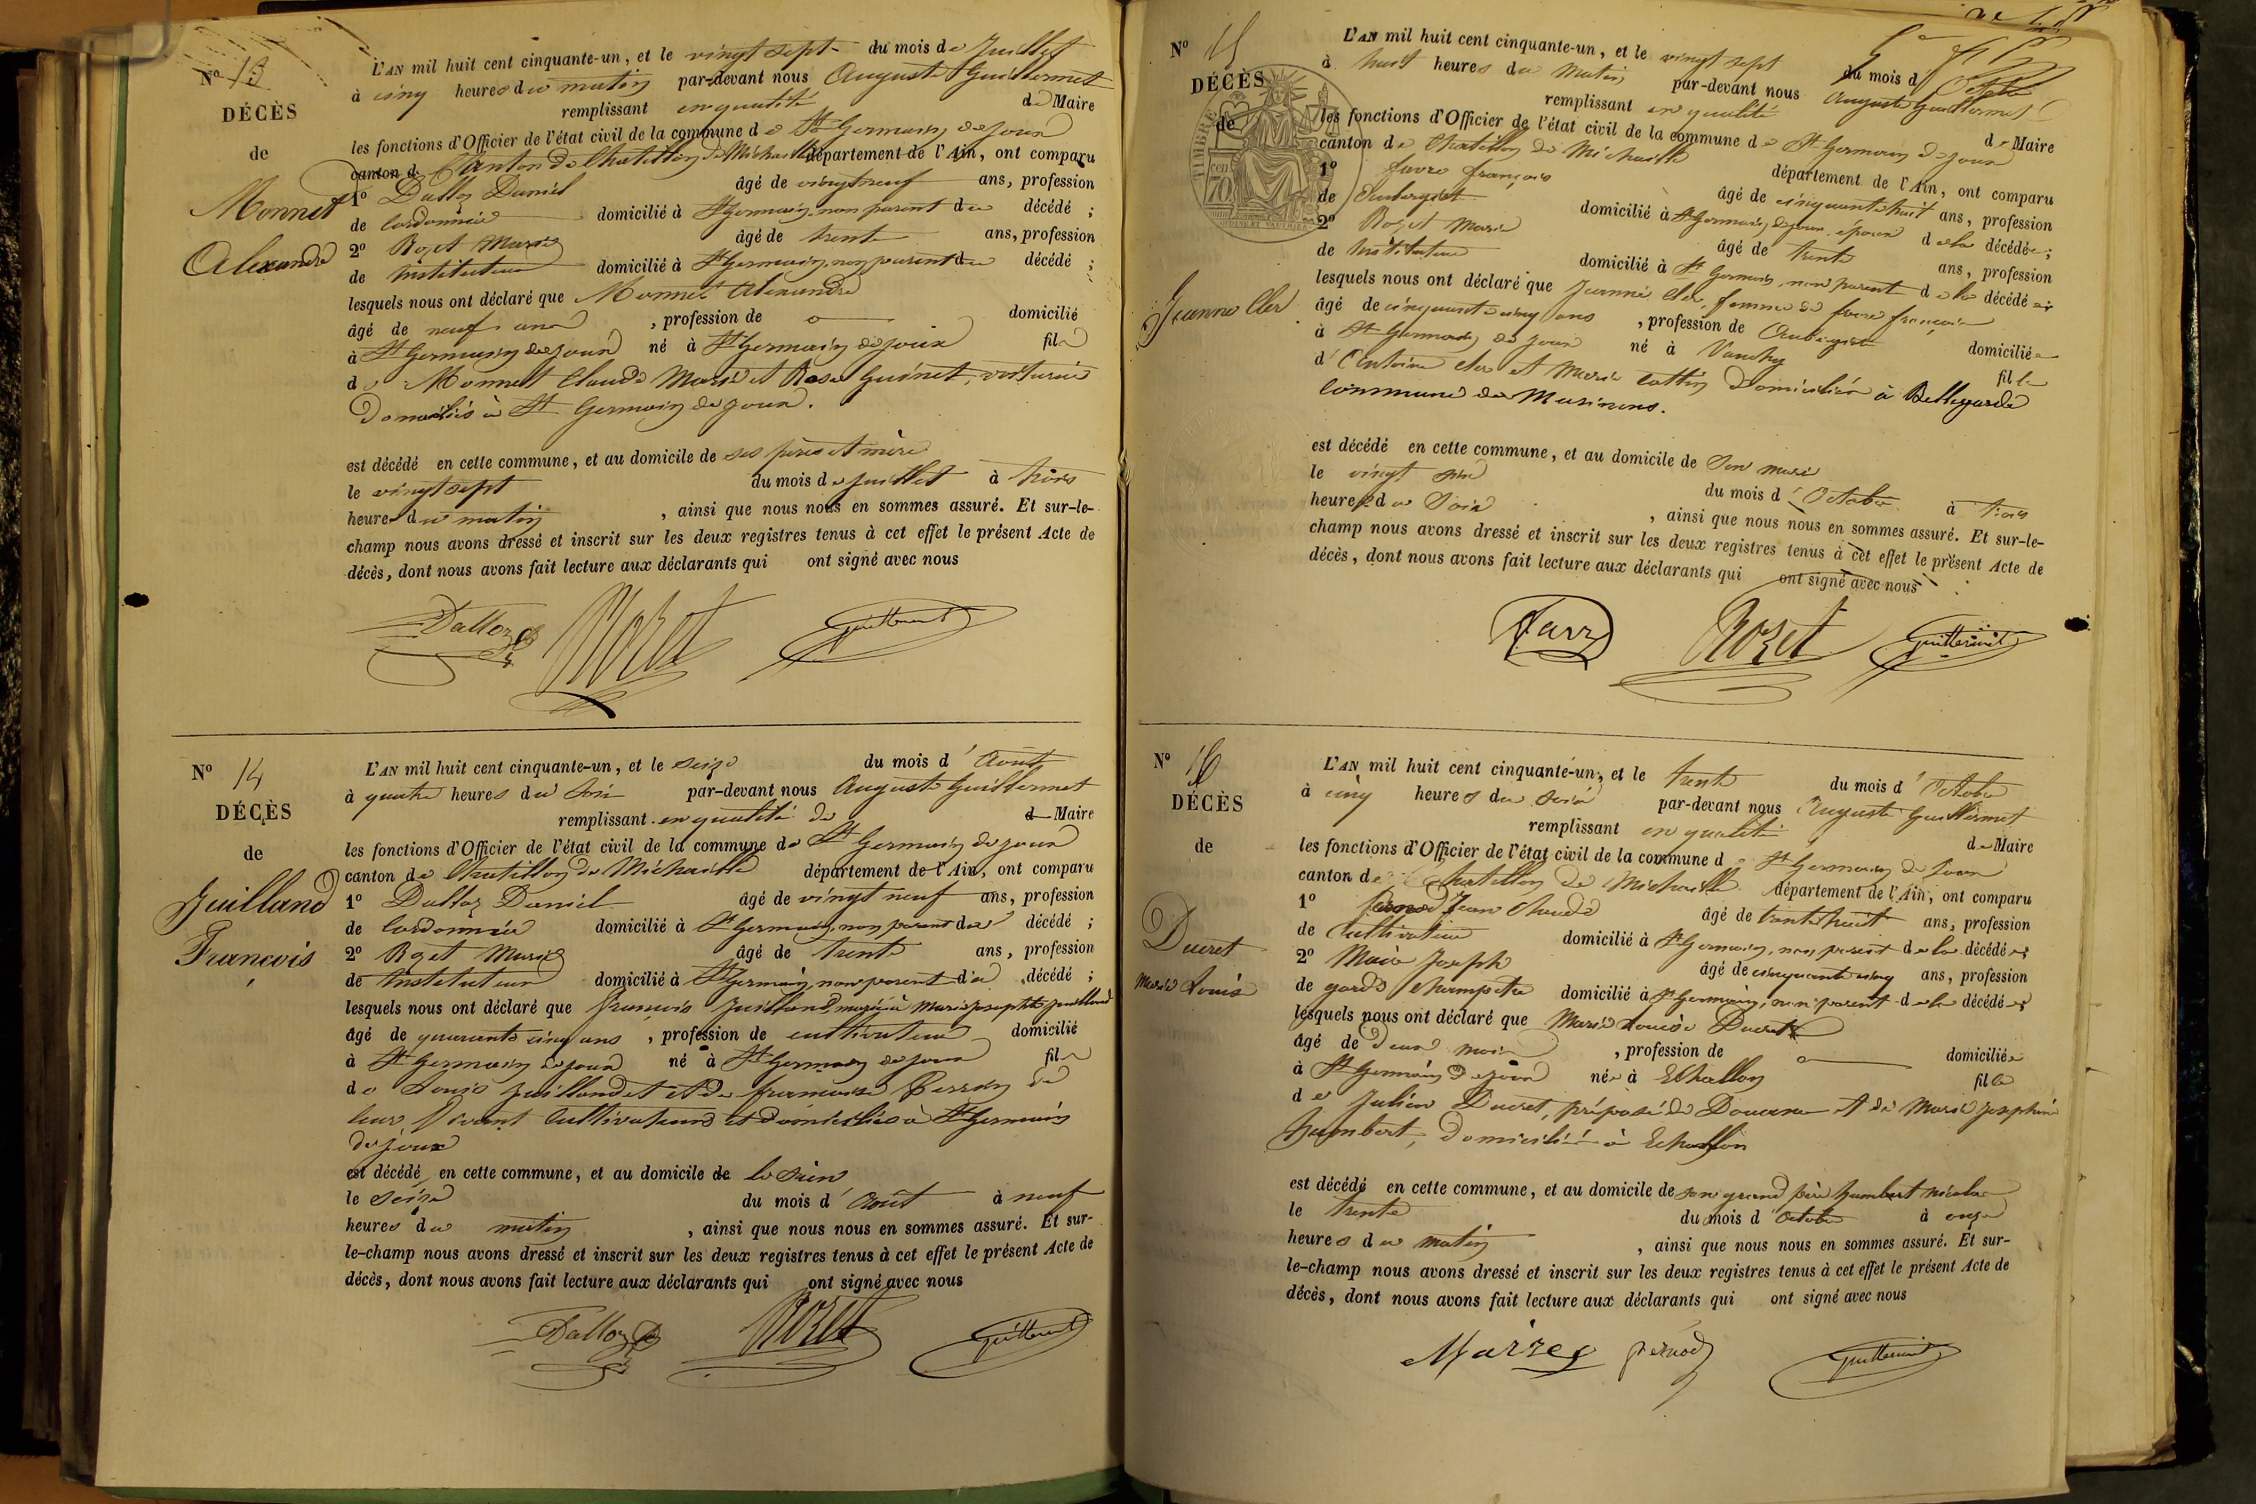 N° 13
DÉCÈS
de
Monnet
Alexandre
L'AN mil huit cent cinquante-un, et le vingt sept du mois de Juillet
à cinq heures du matin par-devant nous Auguste Guillermet
remplissant en qualité de Maire
les fonctions d'Officier de l'état civil de la commune de St Germain de joux
canton de Canton de Chatillon de Michaille département de l'Ain, ont comparu
1° Dalloz Daniel âgé de vingt neuf ans, profession
de Cordonnier domicilié à St Germain, non parent du décédé ;
2° Rozet Marie âgé de trente ans, profession
de Instituteur domicilié à St Germain, non parent du décédé ;
lesquels nous ont déclaré que Monnet Alexandre
âgé de neuf ans, profession de domicilié
à St Germain de joux né à St Germain de joux fils
de Monnet Claude Marie et Rose Guinet, voiturier
Domiciliés à St Germain de joux.
est décédé en cette commune, et au domicile de ses père et mère
le vingt sept du mois de juillet à trois
heures du matin, ainsi que nous nous en sommes assuré. Et sur-le-
champ nous avons dressé et inscrit sur les deux registres tenus à cet effet le présent Acte de
décès, dont nous avons fait lecture aux déclarants qui ont signé avec nous
Dalloz Rozet Guillermet
N° 14
DÉCÈS
de
Juilland
François
L'AN mil huit cent cinquante-un, et le seize du mois d'Août
à quatre heures du soir par-devant nous Auguste Guillermet
remplissant en qualité de de Maire
les fonctions d'Officier de l'état civil de la commune de St Germain de joux
canton de Chatillon de Michaille département de l'Ain, ont comparu
1° Dalloz Daniel âgé de vingt neuf ans, profession
de Cordonnier domicilié à St Germain, non parent du décédé ;
2° Rozet Marie âgé de trente ans, profession
de Instituteur domicilié à St Germain, non parent du décédé ;
lesquels nous ont déclaré que françois Juilland, marié à Marie josephte juilland
âgé de quarante cinq ans, profession de cultivateur domicilié
à St Germain de joux né à St Germain de joux fils
de Louis juilland et de françoise
leur vivant Cultivateurs et domiciliés à St Germain
de joux
est décédé en cette commune, et au domicile de le sien
le seize du mois d'Août à neuf
heures du matin, ainsi que nous nous en sommes assuré. Et sur-
le-champ nous avons dressé et inscrit sur les deux registres tenus à cet effet le présent Acte de
décès, dont nous avons fait lecture aux déclarants qui ont signé avec nous
Dalloz Rozet Guillermet
N° 15
DÉCÈS
de
Jeanne Cler
L'AN mil huit cent cinquante-un, et le vingt sept du mois d'Octobre
à huit heures du Matin par-devant nous Auguste Guillermet
remplissant en qualité de Maire
les fonctions d'Officier de l'état civil de la commune de St Germain de joux
canton de Chatillon de Michaille département de l'Ain, ont comparu
1° favre françois âgé de cinquante huit ans, profession
de Aubergiste domicilié à St Germain de joux, epoux de la décédée ;
2° Rozet Marie âgé de trente ans, profession
de Instituteur domicilié à St Germain, non parent de la décédée
lesquels nous ont déclaré que Jeanne Cler, femme de favre françois
âgé de cinquante cinq ans, profession de Aubergiste domiciliée
à St Germain de joux né à Vanchy fille
d'Antoine cler et Marie Cottin Domiciliés à Bellegarde
Commune de Musinens.
est décédé en cette commune, et au domicile de Son mari
le vingt six du mois d'Octobre à trois
heures du Soir, ainsi que nous nous en sommes assuré. Et sur-le-
champ nous avons dressé et inscrit sur les deux registres tenus à cet effet le présent Acte de
décès, dont nous avons fait lecture aux déclarants qui ont signé avec nous
Favre Rozet Guillermet
N° 16
DÉCÈS
de
Ducret
Marie Louise
L'AN mil huit cent cinquante-un, et le trente du mois d'Octobre
à cinq heures du soir par-devant nous Auguste Guillermet
remplissant en qualité de Maire
les fonctions d'Officier de l'état civil de la commune de St Germain de Joux
canton de Chatillon de Michaille département de l'Ain, ont comparu
1° pernod Jean Claude âgé de trente huit ans, profession
de Cultivateur domicilié à St Germain, non parent de la décédée
2° Joseph âgé de cinquante cinq ans, profession
de garde champetre domicilié à St Germain, non parent de la décédée
lesquels nous ont déclaré que Marie Louise Ducret
âgé de Deux mois, profession de domiciliée
à St Germain de joux née à Echallon fille
de Julien Ducret, préposé de Douane et de Marie josephine
humbert, Domiciliés à Echallon
est décédé en cette commune, et au domicile de son grand père humbert nicolas
le trente du mois d'Octobre à onze
heures du matin, ainsi que nous nous en sommes assuré. Et sur-
le-champ nous avons dressé et inscrit sur les deux registres tenus à cet effet le présent Acte de
décès, dont nous avons fait lecture aux déclarants qui ont signé avec nous
pernod Guillermet